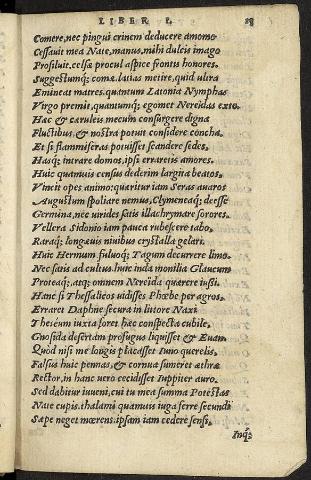 LIBER I. 18
Comere, nec pingui crinem deducere amomo
Cessauit mea Nate, manus, mihi dulcis imago
Prosiluit, celsæ procul aspice frontis honores.
Suggestumq; comæ. latias metire, quid ultra
Emineat matres. quantum Latonia Nymphas
Virgo premit, quantumq; egomet Nereidas exto.
Hæc & cæruleis mecum consurgere digna
Fluctibus, & nostra potuit considere concha.
Et si flammiferas potuisset scandere sedes.
Hasq; intrare domos, ipsi erraretis amores.
Huic quamuis census dederim largita beatos.
Vincit opes animo: quæritur iam Seras auaros
Augustum spoliare nemus, Clymeneaq; deesse
Germina, nec uirides satis illachrymare sorores.
Vellera Sidonio iam pauca rubescere tabo.
Raraq; longæuis niuibus crystalla gelari.
Huic Hermum fuluoq; Tagum decurrere limo.
Nec satis ad cultus huic inda monilia Glaucum
Proteaq; atq; omnem Nereida quærere iussi.
Hanc si Thessalicos uidisses Phœbe per agros.
Erraret Daphne secura in littore Naxi
Theseum iuxta foret hæc conspecta cubile,
Gnosida desertam profugus liquisset & Euan.
Quòd nisi me longis placasset Iuno querelis.
Falsus huic pennas, & cornua sumeret æthræ
Rector, in hanc uero cecidisset Iuppiter auro.
Sed dabitur iuueni, cui tu mea summa Potestas
Nate cupis. thalami quamuis iuga ferre secundi
Sæpe neget mœrens. ipsam iam cedere sensi.
Inq;